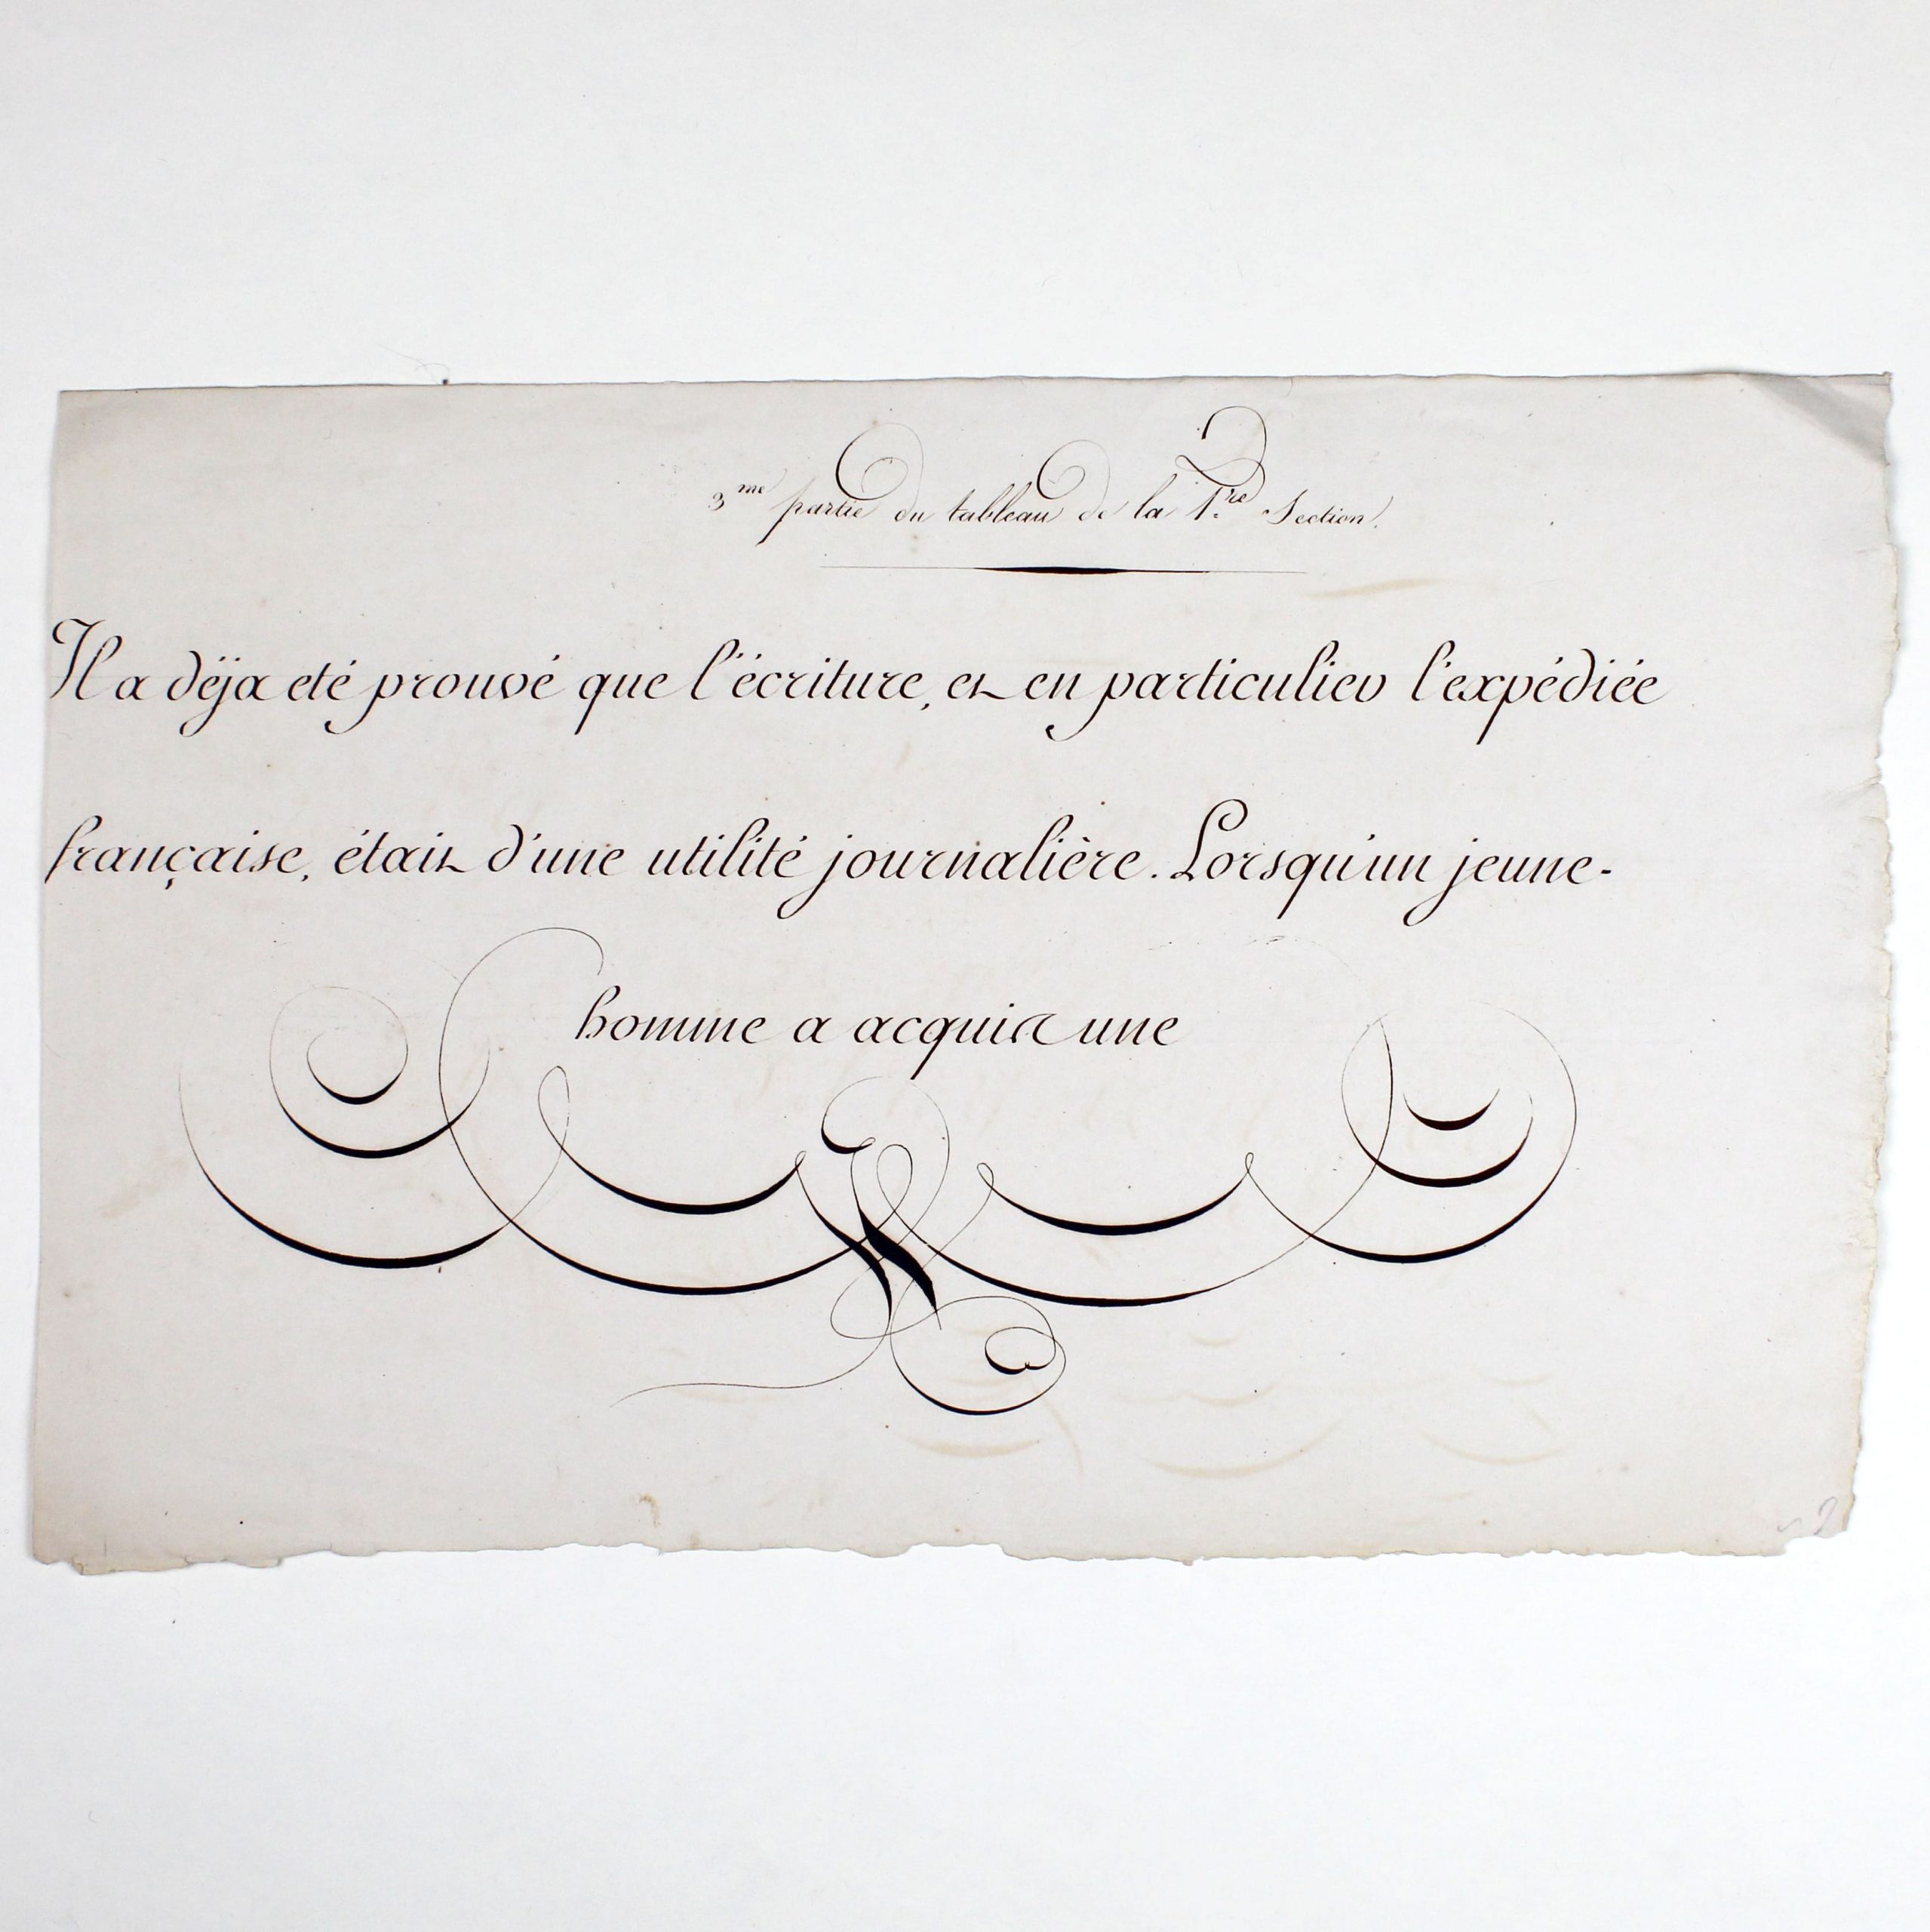 3me partie du tableau de la 1.re Section.
Il a déja eté prouvé que l'écriture, et en particulier l'expédiée
française, était d'une utilité journalière. Lorsqu'un jeune-
homme a acquis une